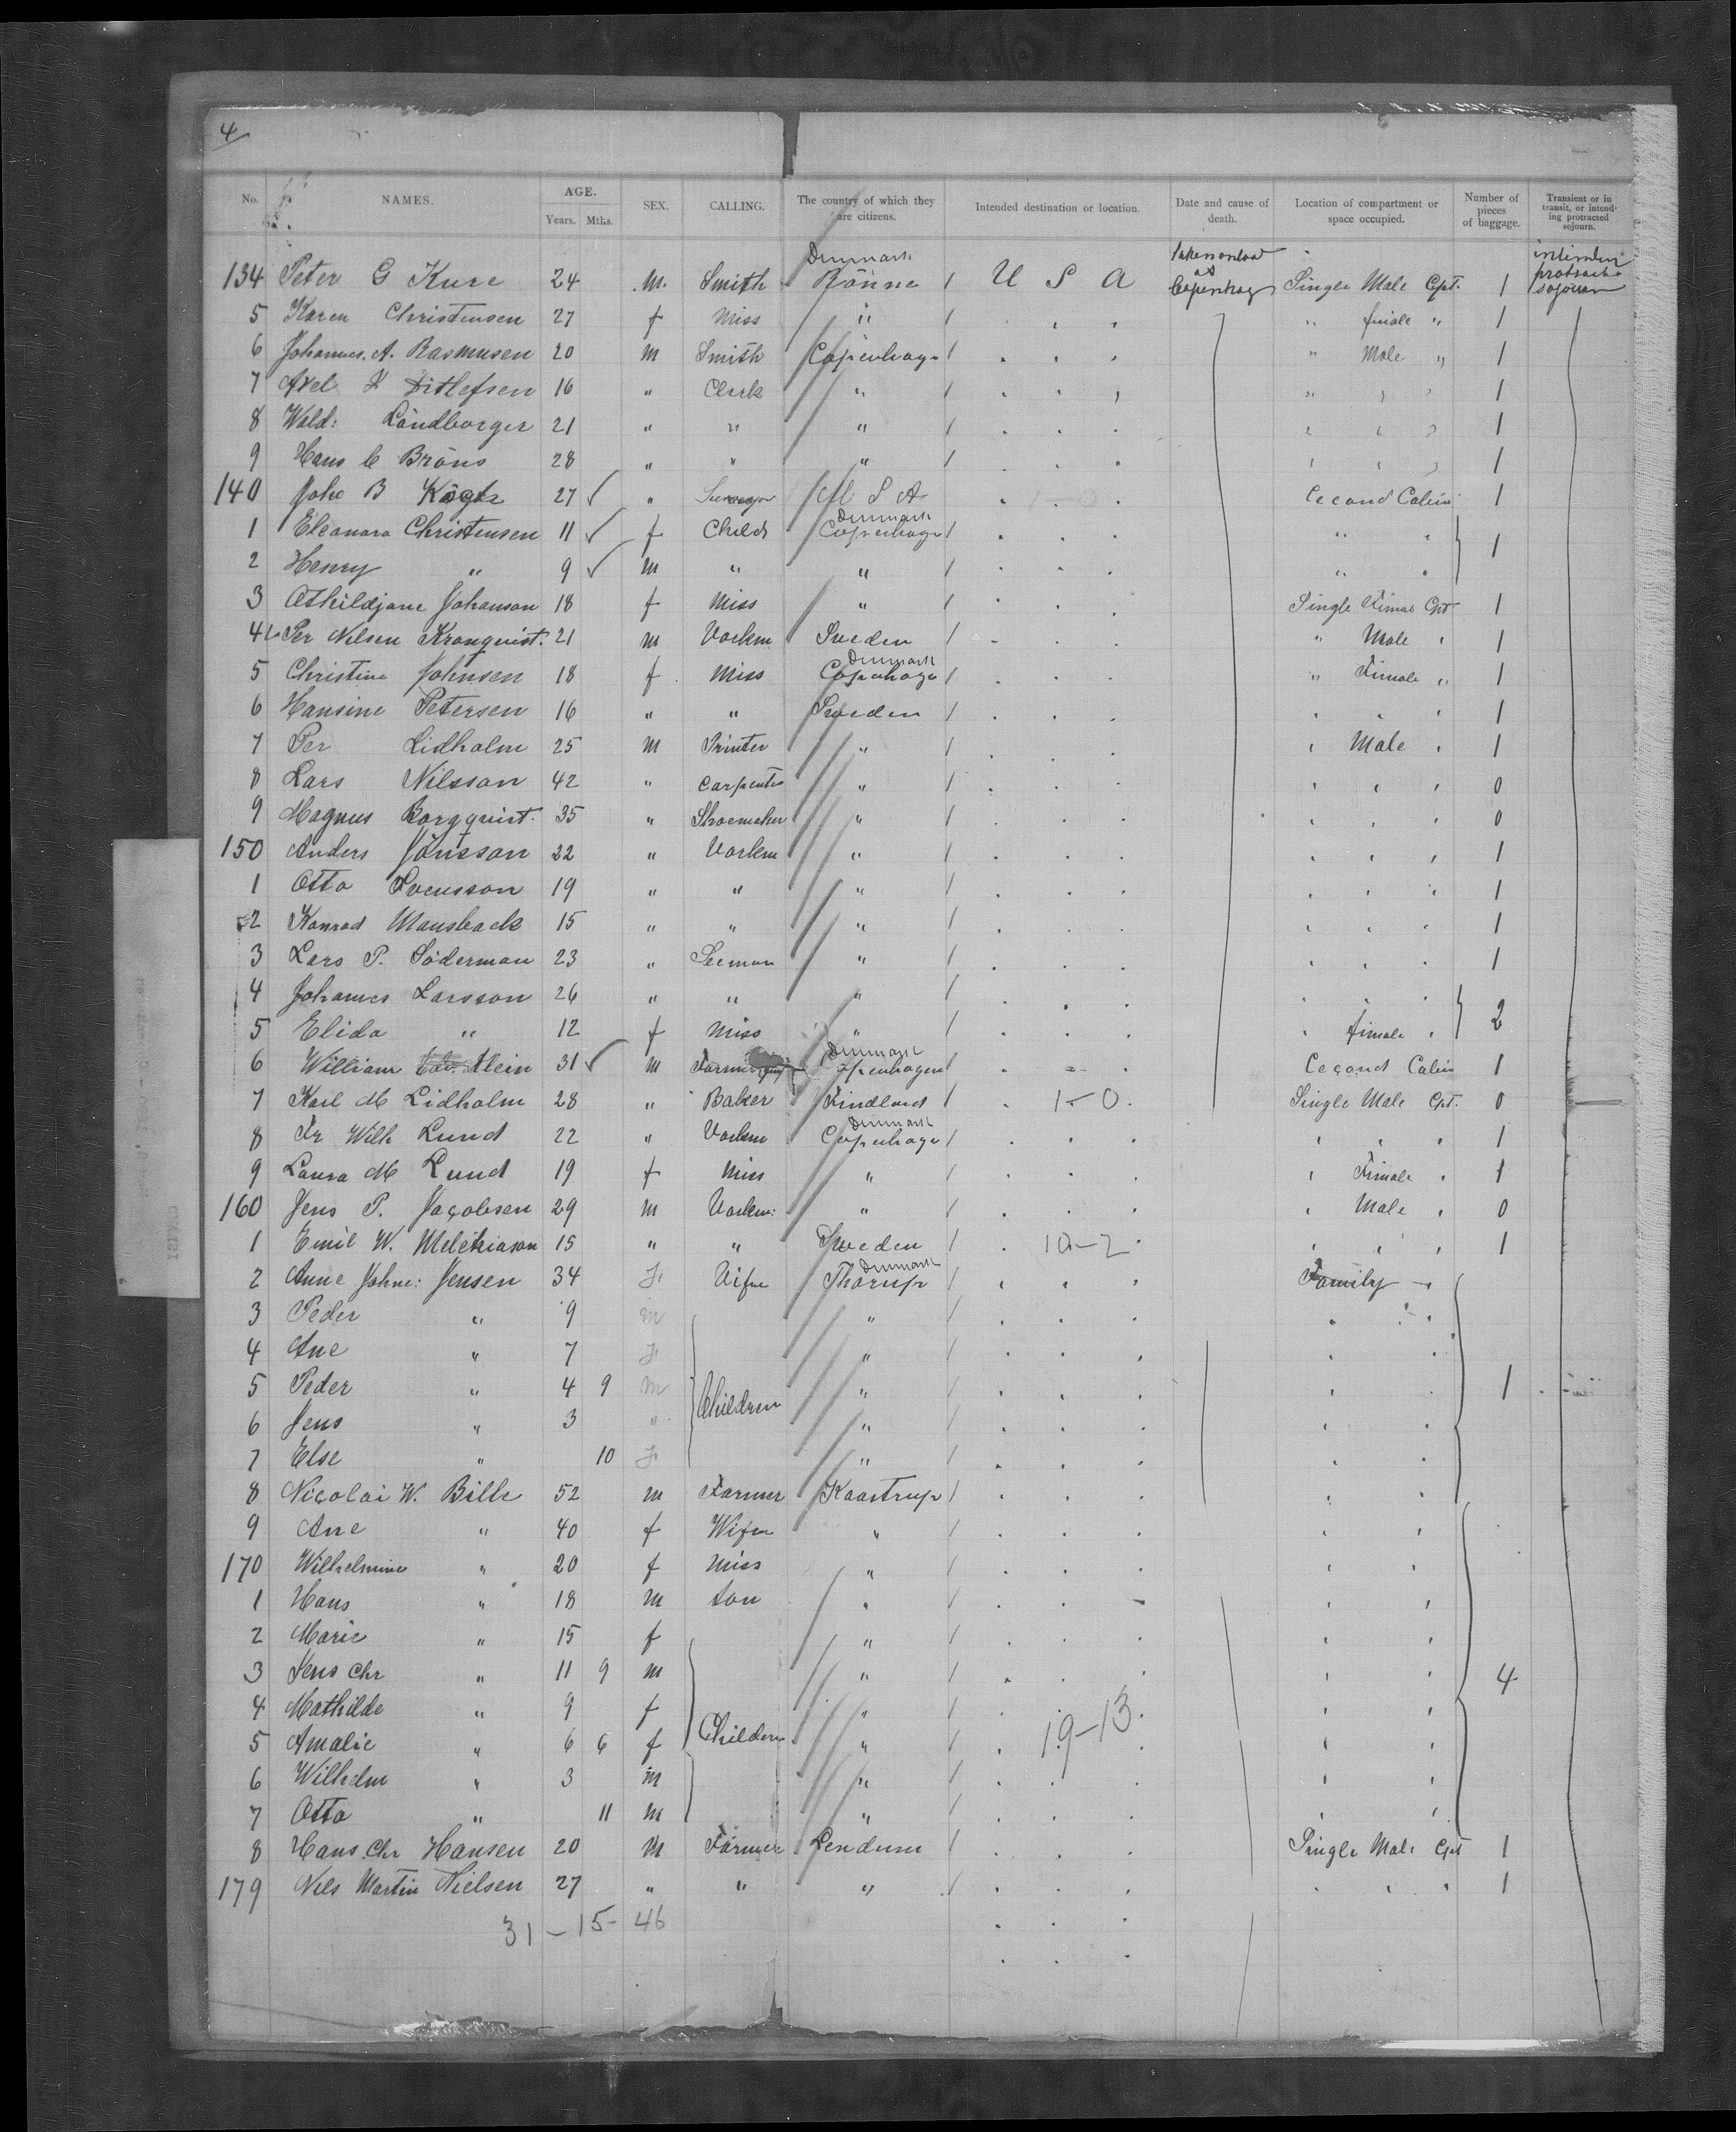 4
No. NAMES. AGE. Years. Mths. SEX. CALLING. The country of which they are citizens. Intended destination or location. Date and cause of death. Location of compartment or space occupied. Number of pieces of baggage. Transient or in transit, or intending protracted sojourn.
134 Peter G Kure 24 M. Smith Denmark Rönne / U S A Copenhag Single Male Cpt. 1 protracte sojourn
5 Karen Christensen 27 f Miss " / . . . " female " 1
6 Johannes. A. Rasmusen 20 M Smith Copenhage / . . . " Male " 1
7 Axel Ditlefsen 16 " Clerk " / . . , " , , 1
8 Wald: Landborger 21 " " " / . . . 1
9 Hans C Bröns 28 " " " / . . . 1
140 Joh B 27 ✓ " U S A . 1-0 . Cecond Cabin 1
1 Eleonara Christensen 11 ✓ f Child Denmark Copenhage / . . . " " 1
2 Henry " 9 ✓ m " " / . . . " "
3 Athildjane Johanson 18 f Miss " / . . . Single Cpt 1
4 Per Nilsen Kronquist. 21 m Vorkm Sweden / . . . " Male " 1
5 Christine Johnsen 18 f. Miss Denmark Copenhage / . . . " Fimale " 1
6 Hansine Petersen 16 " " Sweden / . . . 1
7 Per Lidholm 25 M Printer " / . . . Male 1
8 Lars Nilsson 42 " Carpenter " / . . . 0
9 Magnus Borgquist. 35 " Shoemaker " / . . . 0
150 Anders Jönsson 22 " Vorkm " / . . . 1
1 Otto Svensson 19 " " " / . . . 1
2 Konrad Mansback 15 " " " / . . . 1
3 Lars P. Söderman 23 " Seeman " / . . . 1
4 Johannes Larsson 26 " " " / . . . 2
5 Elida " 12 f Miss " / . . . fimale
6 William Klein 31 ✓ m Farmer Denmark Copenhagen / . . . Cecond Cabin 1
7 Karl M Lidholm 28 " Baker Findland / . 1-0 . Single Male Cpt. 0
8 Fr Wilh Lund 22 " Vorkm Denmark Copenhage / . . . 1
9 Laura M Lund 19 f Miss " / . . . Fimale 1
160 Jens P. Jacobsen 29 m Vorkm: " / . . . Male 0
1 Emil W. Melchiason 15 " " Sweden / . 10-2 . 1
2 Anne Johne: Jensen 34 f Vife Denmark Thorup / . . . Family
3 Peder " 9 m " / . . .
4 Ane " 7 f " / . . .
5 Peder " 4 9 m Children " / . . . 1
6 Jens " 3 " " / . . .
7 Else " 10 f " / . . .
8 Nicolai W. Bille 52 m Farmer Kaastrup / . . .
9 Ane " 40 f Wife " / . . .
170 Wilhelmine " 20 f Miss " / . . .
1 Hans " 18 m son " / . . .
2 Marie " 15 f " / . . .
3 Jens Chr " 11 9 m " / . . . 4
4 Mathilde " 9 f " / . . .
5 Amalie " 6 6 f Children " / . 19-13 .
6 Wilhelm " 3 m " / . . .
7 Otto " 11 m " / . . .
8 Hans Chr Hansen 20 M Farmer Lendum / . . . Single Male Cpt 1
179 Nils Martin Nielsen 27 " " " / . . . 1
31 - 15 - 46